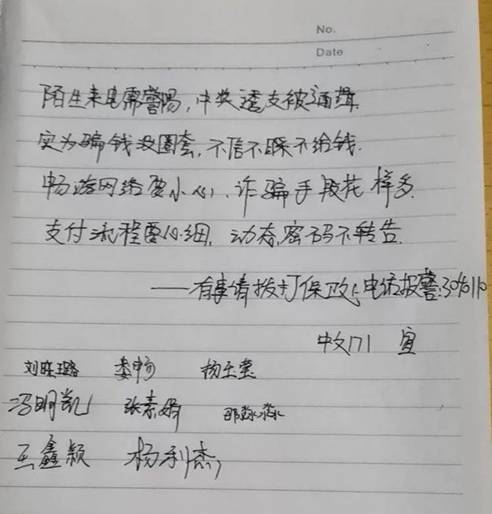 No.
Date
陌生来电需警惕,中奖透支被通缉.
实为骗钱设圈套,不信不睬不给钱.
畅游网络要小心,诈骗手段花样多.
支付流程要仔细,动态密码不转告.
——有事请拨打保卫处电话报警
中文171 宣
娄畅 杨玉莹
冯明凯 张素娟
王鑫颖 杨利杰